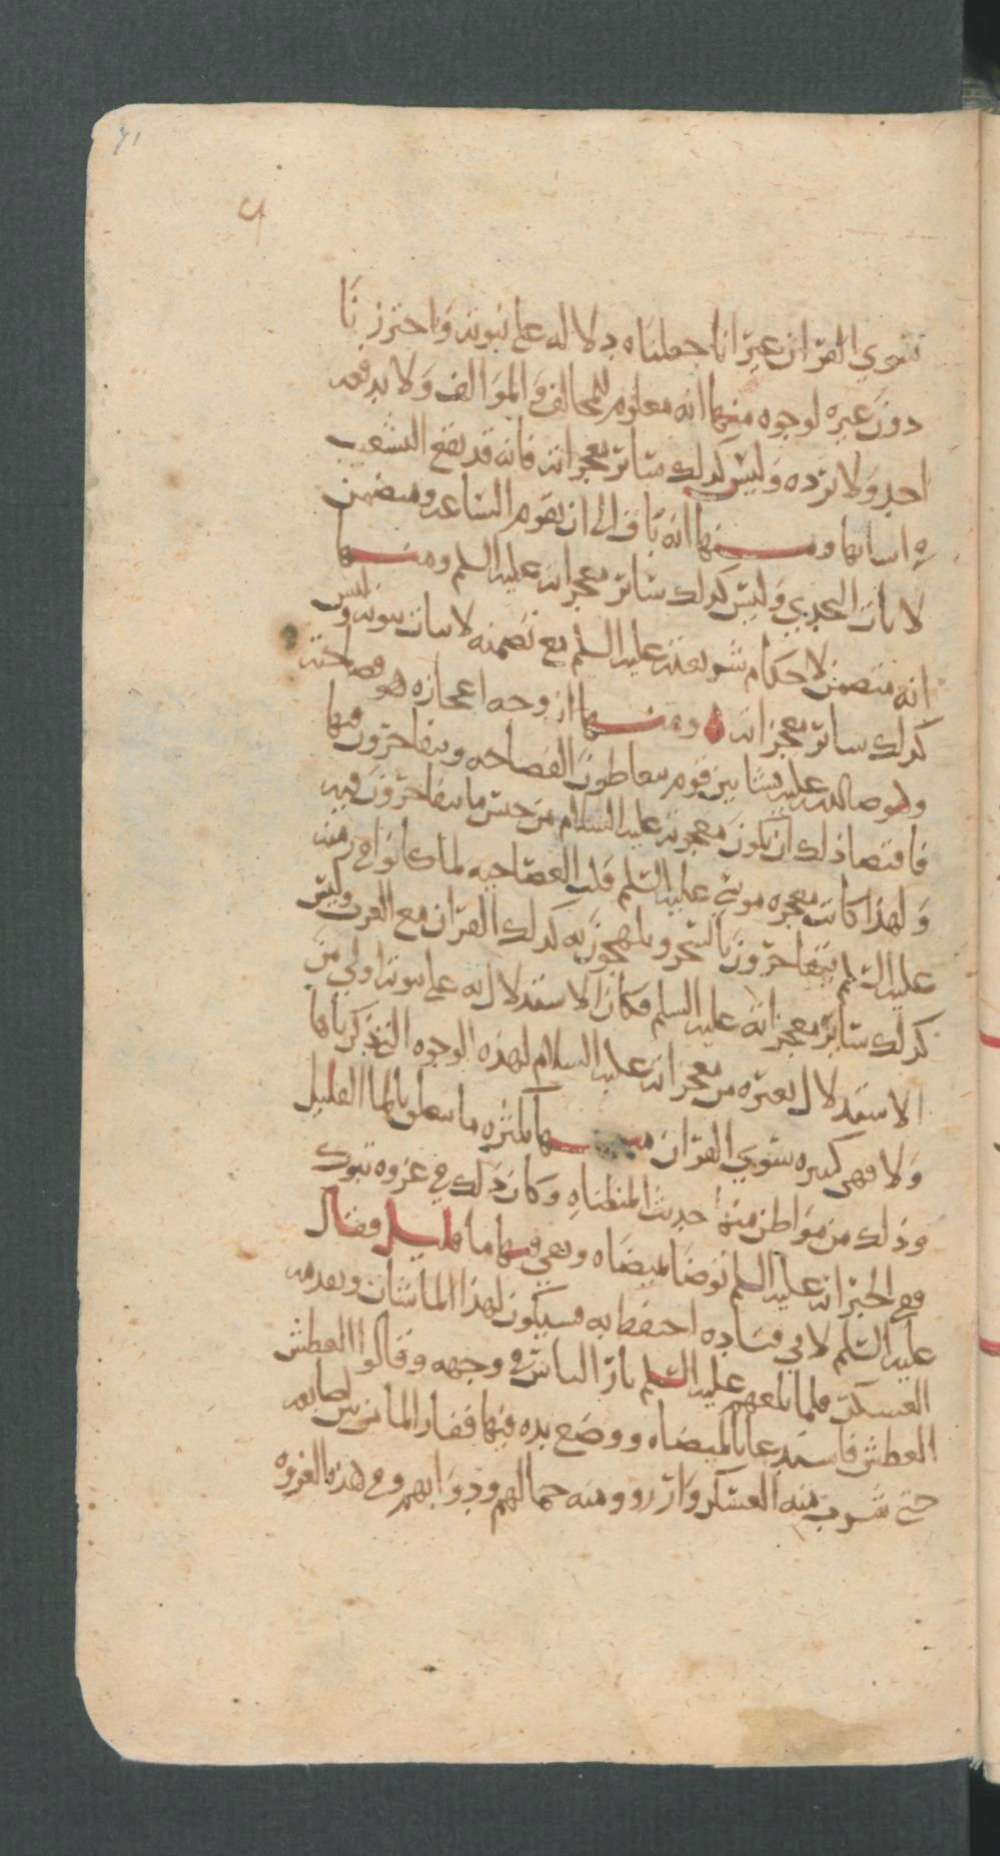 سوى القران غير انا جعلناه دلاله على نبوته واحترزنا
دون غيره لوجوه منها انه معلوم للمخالف والموالف ولا يدفعه
احد ولا يرده وليس كذلك سائر معجزاته فانه قد يقع التشغيب
في اسابها ومنها انه باق الى ان تقوم الساعه ومتضمن
لايات التحدي وليس كذلك سائر معجزاته عليه السلم ومنها
انه متضمن لاحكام شريعته عليه السلم مع تضمنه لاسات نبوته وليس
كذلك سائر معجزاته ومنها ان وجه اعجازه هو فصاحته
وهو صلى الله عليه نشا بين قوم يتعاطون الفصاحه ويتفاخرون فيها
فاقتضا ذلك ان تكون معجزته عليه السلام من جنس ما يتفاخرون فيه
ولهذا كانت معجزه موسى عليه السلم قلب العصا حيه لما كانوا في زمنه
عليه السلم يتفاخرون بالسحر ويلهجون به كذلك القران مع العرب وليس
كذلك سائر معجزاته عليه السلم فكان الاستدلال به على نبوته اولى من
الاستدلال بغيره من معجزاته عليه السلام لهذه الوجوه التي ذكرناها
ولا فهي كثيره سوى القران منها تكثره ما سعلق بالما القليل
وذلك من مواطن منها حديث الميضاه وكان ذلك في غزوه تبوك
ففي الخبر انه عليه السلم توضا لميضاه وبقي فيها ما قليل فقال
عليه السلم لابي قتاده احتفظ به فسيكون لهذا الما شان وتقدمه
العسكر فلما بلغهم عليه السلم ثار الناس في وجهه وقالوا العطش
العطش فاستدعا بالميضاه ووضع يده فيها ففار الما من بين اصابعه
حتى شرب منه العسكر وارتووا ومنه جمالهم ودوابهم وفي هذه الغزوه